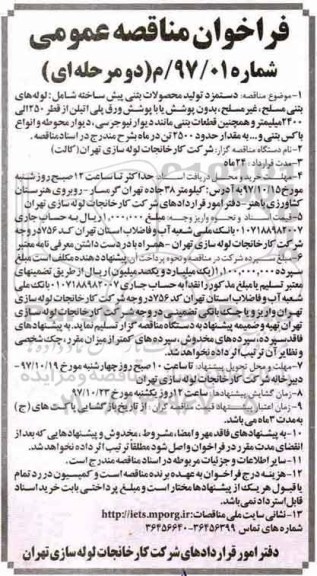 فراخوان مناقصه عمومی
شماره ۹۷/۰۱/م(دو مرحله ای)
۱-موضوع مناقصه: دستمزد تولید محصولات بتنی پیش ساخته شامل: لوله های
بتنی مسلح، غیر مسلح، بدون پوشش یا با پوشش ورق پلی اتیلن از قطر ۲۵۰ الی
۲۴۰۰ میلیمتر و همچنین قطعات بتنی مانند دیوار نیوجرسی، دیوار محوطه و انواع
باکس بتنی و... به مقدار حدود ۲۵۰۰ تن در ماه بشرح مندرج در اسناد مناقصه.
۲-نام دستگاه مناقصه گزار: شرکت کارخانجات لوله سازی تهران (کالت)
۳-مدت قرارداد: ۲۴ ماه
۴-مهلت خرید و محل دریافت اسناد: حداکثر تا ساعت ۱۲ صبح روز شنبه
مورخ ۹۷/۱۰/۱۵ به آدرس: کیلومتر ۳۸ جاده تهران گرمسار - روبروی هنرستان
کشاورزی باهنر - دفتر امور قراردادهای شرکت کارخانجات لوله سازی تهران
۵-قیمت اسناد و نحوه واریز وجه: مبلغ ۱,۰۰۰,۰۰۰ ریال به حساب جاری
۰۱۰۷۱۸۸۹۸۲۰۰۷ بانک ملی شعبه آب و فاضلاب استان تهران کد ۷۵۶ در وجه
شرکت کارخانجات لوله سازی تهران - همراه با در دست داشتن معرفی نامه معتبر
۶-مبلغ سپرده شرکت در مناقصه و نحوه پرداخت آن: پیشنهاد دهنده مکلف است مبلغ
سپرده ۱,۱۰۰,۰۰۰,۰۰۰ (یک میلیارد و یکصد میلیون) ریال از طریق تضمینهای
معتبر تسلیم یا مبلغ مذکور را نقدا به حساب جاری ۰۱۰۷۱۱۸۸۹۸۲۰۰۷ بانک ملی
شعبه آب و فاضلاب استان تهران کد ۷۵۶ در وجه شرکت کارخانجات لوله سازی
تهران واریز و یا چک بانکی تضمینی در وجه شرکت کارخانجات لوله سازی
تهران تهیه و ضمیمه پیشنهاد به دستگاه مناقصه گزار تسلیم نماید. به پیشنهادهای
فاقد سپرده، سپرده های مخدوش، سپرده های کمتر از میزان مقرر، چک شخصی
و نظایر آن ترتیب اثر داده نخواهد شد.
۷-مهلت و محل تحویل پیشنهاد: تا ساعت ۱۰ صبح روز چهارشنبه مورخ ۹۷/۱۰/۱۹-
دبیرخانه شرکت کارخانجات لوله سازی تهران
۸-زمان گشایش پیشنهادها: ساعت ۱۲ روز یکشنبه مورخ ۹۷/۱۰/۲۳
۹-زمان اعتبار پیشنهاد قیمت مناقصه گران: از تاریخ بازگشایی پاکت های (ج)
به مدت ۳ ماه می باشد.
۱۰-به پیشنهادهای فاقد مهر و امضا، مشروط، مخدوش و پیشنهادهایی که بعد از
انقضای مدت مقرر در فراخوان واصل شود مطلقا ترتیب اثر داده نخواهد شد.
۱۱-سایر اطلاعات و جزئیات مربوطه در اسناد مناقصه مندرج است.
۱۲-هزینه درج فراخوان به عهده برنده مناقصه است و کمیسیون در رد تمام
یا قبول هر یک از پیشنهادها مختار است و مبلغ پرداختی بابت خرید اسناد
قابل استرداد نمی باشد.
۱۳-نشانی سایت ملی مناقصات: http://iets.mporg.ir
شماره های تماس ۳۶۴۵۶۳۹۹-۳۶۴۵۶۶۴۰
دفتر امور قراردادهای شرکت کارخانجات لوله سازی تهران